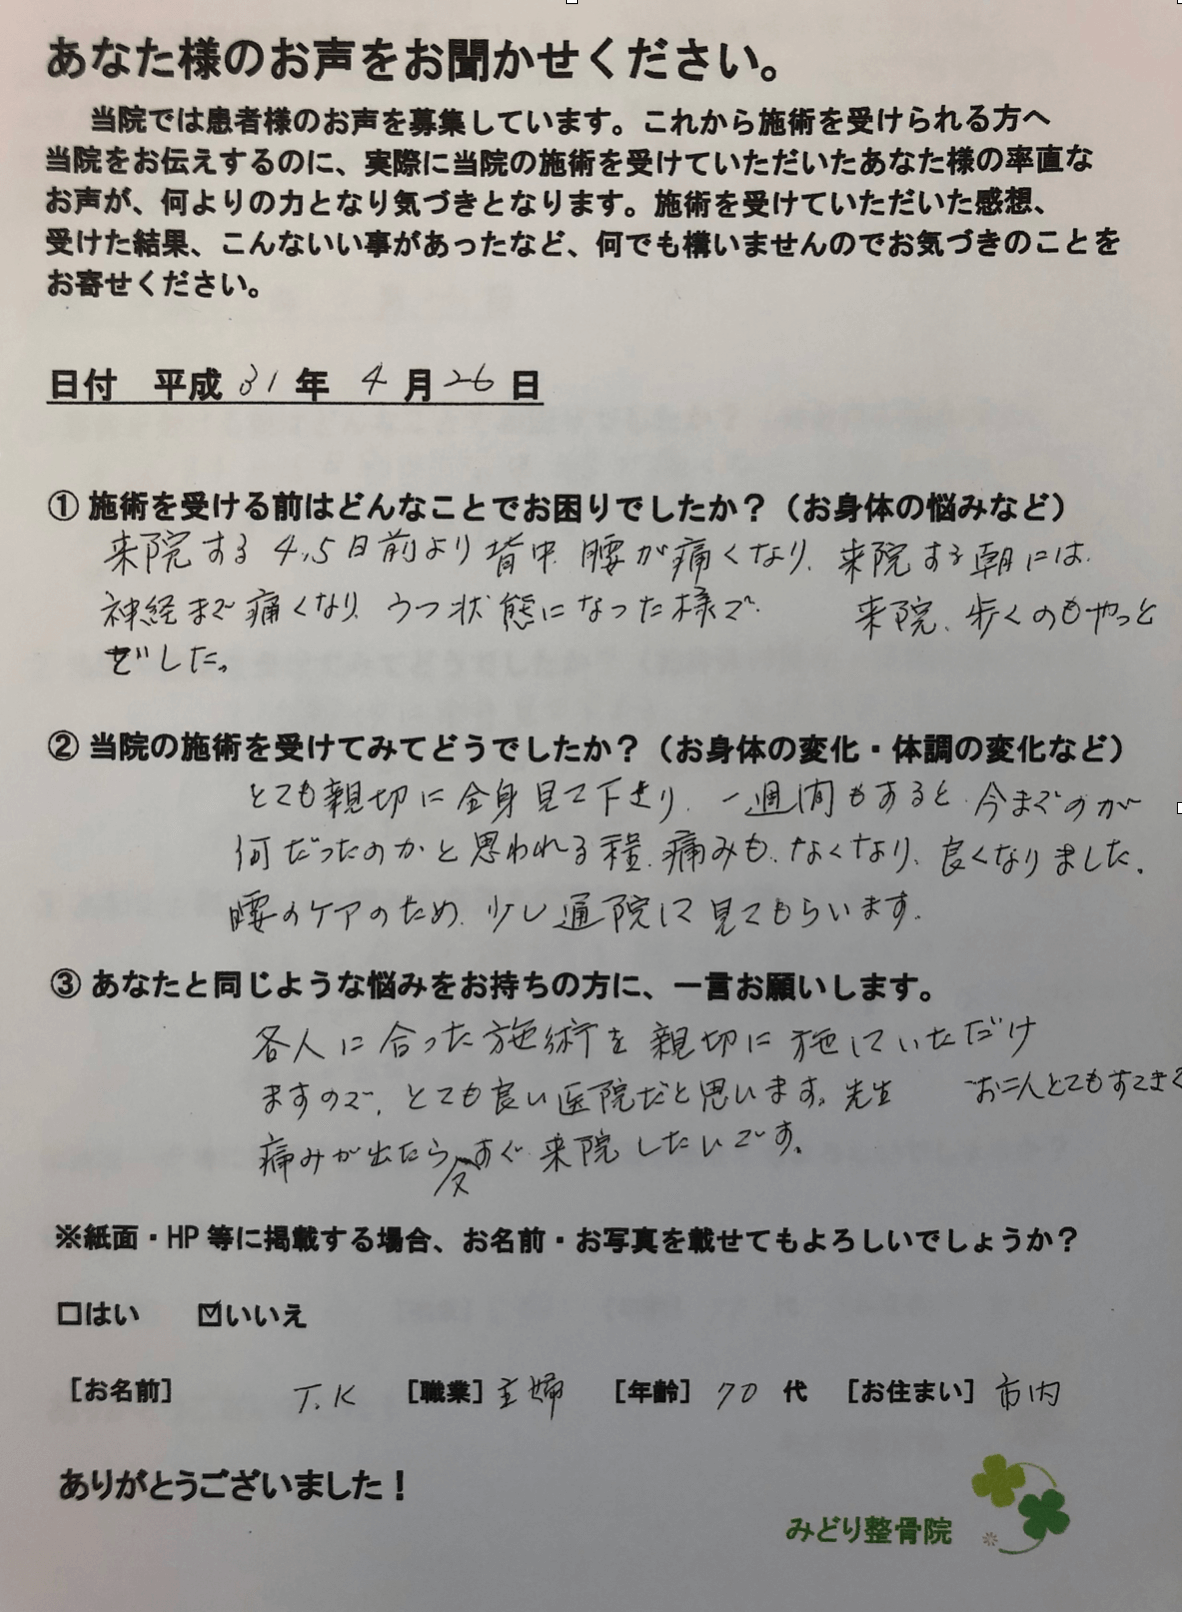 あなた様のお声をお聞かせください。
当院では患者様のお声を募集しています。これから施術を受けられる方へ
当院をお伝えするのに、実際に当院の施術を受けていただいたあなた様の率直な
お声が、何よりの力となり気づきとなります。施術を受けていただいた感想、
受けた結果、こんないい事があったなど、何でも構いませんのでお気づきのことを
お寄せください。
日付 平成 31 年 4 月 26 日
① 施術を受ける前はどんなことでお困りでしたか？（お身体の悩みなど）
来院する 4,5日前より 背中、腰が痛くなり、来院する朝には、
神経まで痛くなり、うつ状態になった様で 来院、歩くのもやっと
でした。
② 当院の施術を受けてみてどうでしたか？（お身体の変化・体調の変化など）
とても親切に全身見て下さり、一週間もあると、今までのが
何だったのかと思われる程、痛みも、なくなり、良くなりました。
腰のケアのため、少し通院して見てもらいます。
③ あなたと同じような悩みをお持ちの方に、一言お願いします。
各人に合った施術を親切に施していただけ
ますので、とても良い医院だと思います。先生 お二人とてもすてきで
痛みが出たら又すぐ来院したいです。
※紙面・HP等に掲載する場合、お名前・お写真を載せてもよろしいでしょうか？
□はい ☑いいえ
［お名前］ T.K ［職業］主婦 ［年齢］70 代 ［お住まい］市内
ありがとうございました！
みどり整骨院